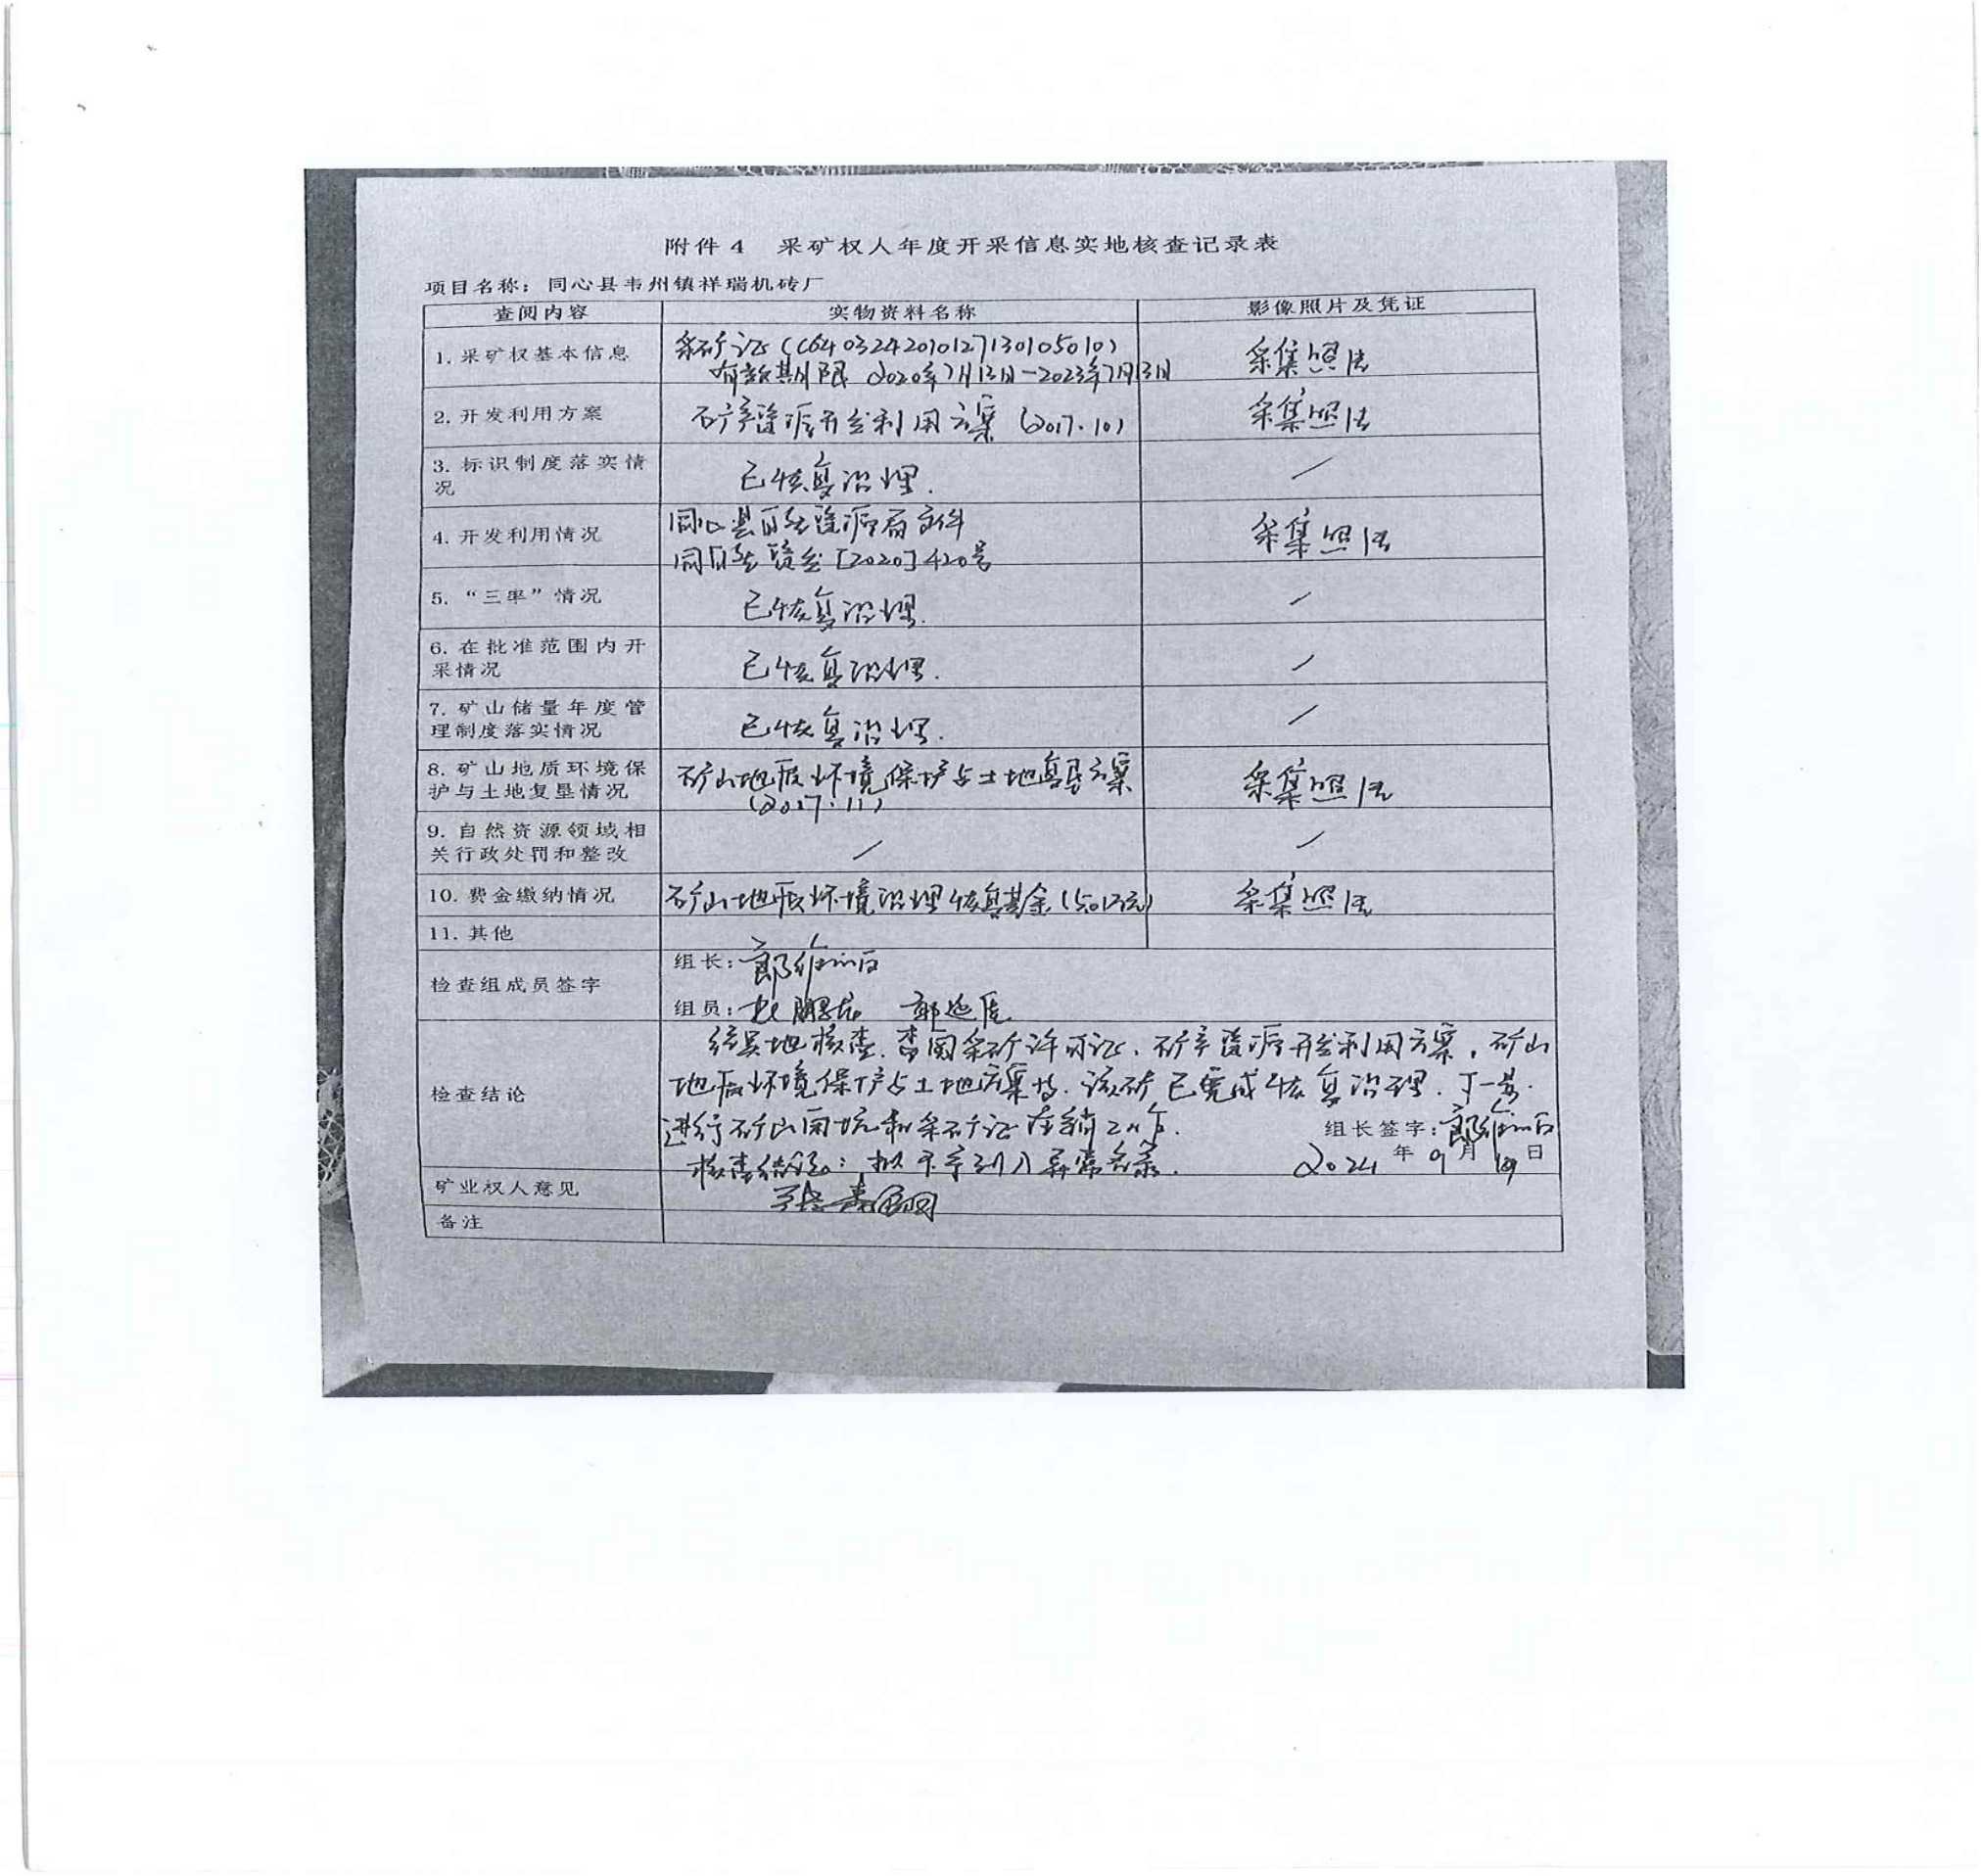 附件 4 采矿权人年度开采信息实地核查记录表
项目名称：同心县韦州镇祥瑞机砖厂
查阅内容 实物资料名称 影像照片及凭证
1. 采矿权基本信息 采矿证(C6403242010127130105010) 采集照片
有效期限 2020年7月13日-2023年7月13日
2. 开发利用方案 矿产资源开发利用方案(2017.10) 采集照片
3. 标识制度落实情
况 已恢复治理. /
4. 开发利用情况 同心县自然资源局文件 采集照片
同自然资发[2020]420号
5. “三率”情况 已恢复治理. /
6. 在批准范围内开
采情况 已恢复治理. /
7. 矿山储量年度管
理制度落实情况 已恢复治理. /
8. 矿山地质环境保
护与土地复垦情况 矿山地质环境保护与土地复垦方案 采集照片
(2017.11)
9. 自然资源领域相
关行政处罚和整改 / /
10. 费金缴纳情况 矿山地质环境治理恢复基金 采集照片
11. 其他
检查组成员签字 组长：
组员：
检查结论
经实地核查.查阅采矿许可证、矿产资源开发利用方案,矿山
地质环境保护与土地方案等.该矿已完成恢复治理.下一步.
进行矿山闭坑和采矿证注销工作.
组长签字：
核查结论：拟不予列入异常名录. 2024 年 9 月 19 日
矿业权人意见
备注